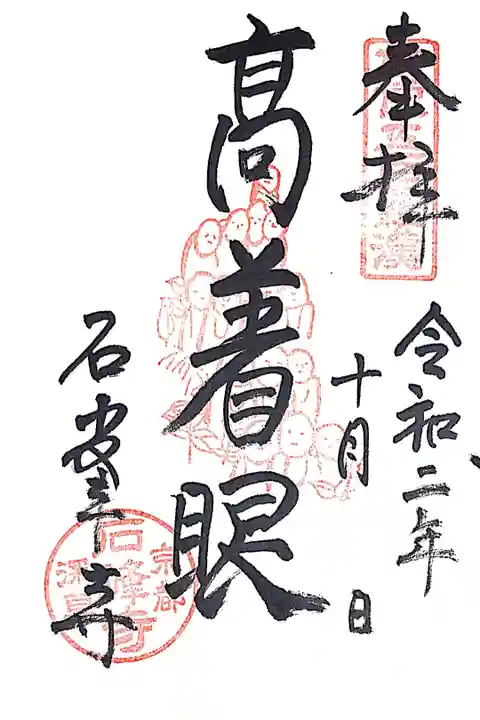 奉拝
令和二年
十月 日
髙着眼
石峯寺
京都
石峰寺
深草